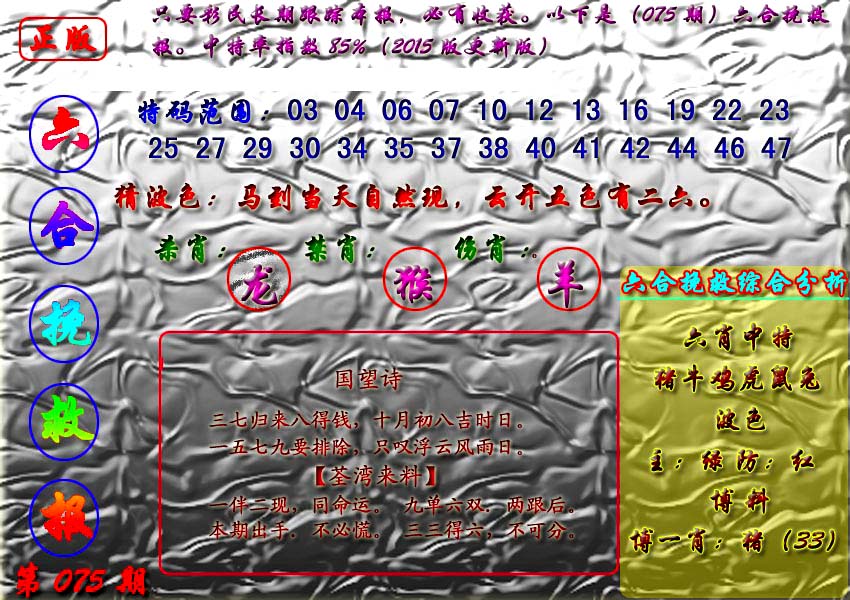 正版
只要彩民长期跟踪本报，必有收获。以下是（075期）六合挽救
报。中特率指数85%（2015版更新版）
六合挽救报
第075期
特码范围：03 04 06 07 10 12 13 16 19 22 23
25 27 29 30 34 35 37 38 40 41 42 44 46 47
猜波色：马到当天自然现，云开五色有二六。
杀肖：龙 禁肖：猴 伤肖：羊
国望诗
三七归来八得钱，十月初八吉时日。
一五七九要排除，只叹浮云风雨日。
【荃湾来料】
一伴二现，同命运。 九单六双．两跟后。
本期出手．不必慌。 三三得六，不可分。
六合挽救综合分析
六肖中特
猪牛鸡虎鼠兔
波色
主：绿 防：红
博料
博一肖：猪（33）